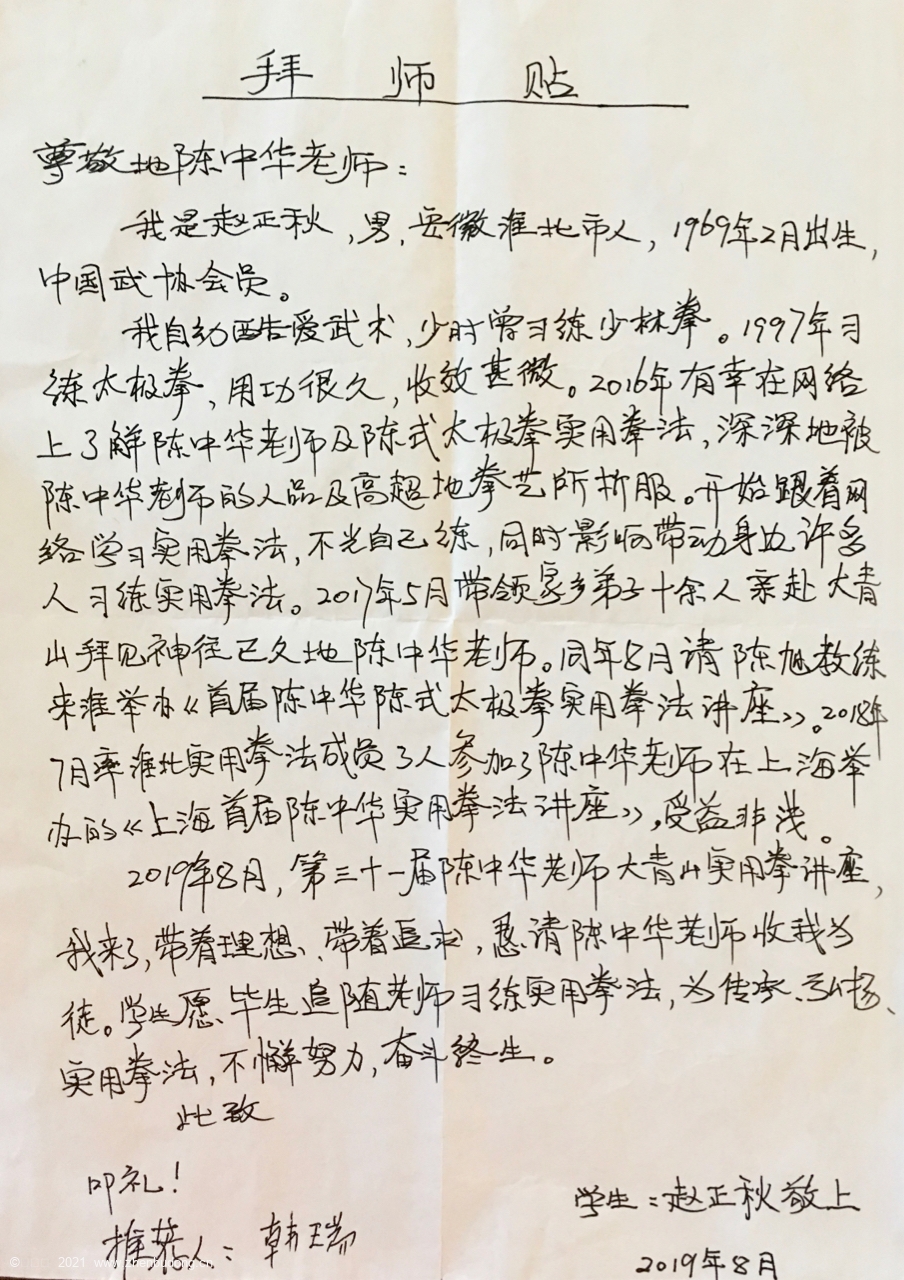 拜师贴
尊敬地陈中华老师：
我是赵正秋，男，安徽淮北市人，1969年2月出生，
中国武协会员。
我自幼酷爱武术，少时曾习练少林拳。1997年习
练太极拳，用功很久，收效甚微。2016年有幸在网络
上了解陈中华老师及陈式太极拳实用拳法，深深地被
陈中华老师的人品及高超地拳艺所折服。开始跟着网
络学习实用拳法，不光自己练，同时影响带动身边许多
人习练实用拳法。2017年5月带领家乡弟子十余人亲赴大青
山拜见神往已久地陈中华老师。同年8月请陈旭教练
来淮举办《首届陈中华陈式太极拳实用拳法讲座》。2018年
7月率淮北实用拳法成员3人参加了陈中华老师在上海举
办的《上海首届陈中华实用拳法讲座》，受益非浅。
2019年8月，第三十一届陈中华老师大青山实用拳讲座，
我来了，带着理想、带着追求，恳请陈中华老师收我为
徒。学生愿毕生追随老师习练实用拳法，为传承、弘扬、
实用拳法，不懈努力，奋斗终生。
此致
叩礼！
学生：赵正秋敬上
推荐人：韩瑞
2019年8月
© 2021 www.zhenhudong.cn